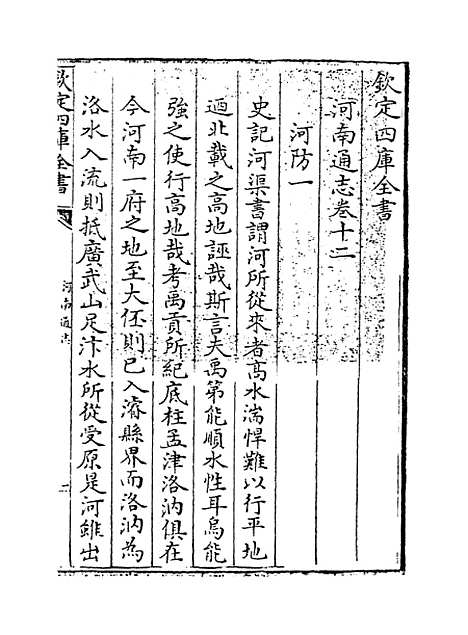 欽定四庫全書
河南通志卷十二
河防一
史記河渠書謂河所從來者髙水湍悍難以行平地
迺北載之高地誣哉斯言夫禹第能順水性耳烏能
強之使行高地哉考禹貢所紀底柱孟津洛汭俱在
今河南一府之地至大伾則已入濬縣界而洛汭為
洛水入流則抵廣武山足汴水所從受原是河雖出
欽定四庫全書
河南通志